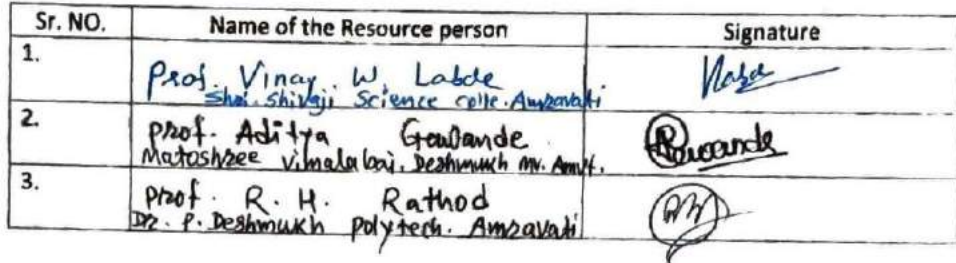 Sr. NO. Name of the Resource person Signature
1. Prof. Vinay W. Labde
Shri. Shivaji Science colle. Amravati
2. prof. Aditya Gawande
Matoshree Vimalabai. Deshmukh mv. Amt.
3. prof. R. H. Rathod
Dr. P. Deshmukh polytech. Amravati